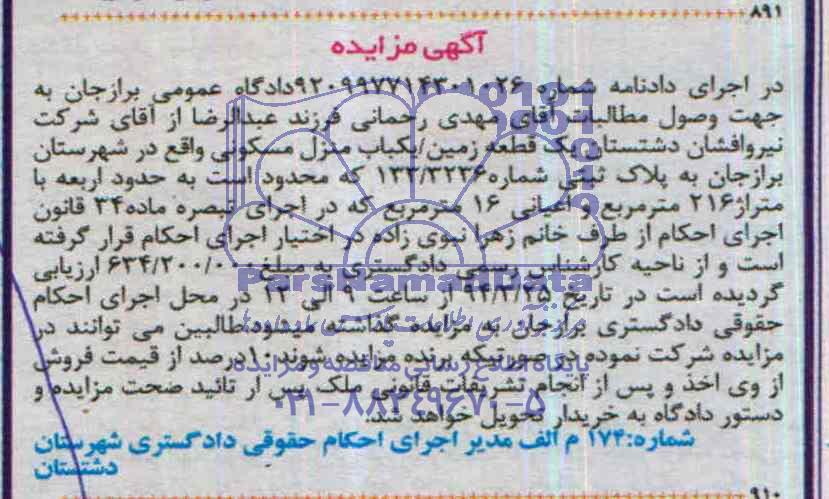 ۸۹۱
آگهی مزایده
در اجرای دادنامه شماره ۹۲۰۹۹۷۷۱۴۳۰۱۰۲۶دادگاه عمومی برازجان به
جهت وصول مطالبات آقای مهدی رحمانی فرزند عبدالرضا از آقای شرکت
نیروافشان دشتستان یک قطعه زمین/یکباب منزل مسکونی واقع در شهرستان
برازجان به پلاک ثبتی شماره۱۳۳/۳۲۳۶ که محدود است به حدود اربعه با
متراژ۲۱۶ مترمربع و اعیانی ۱۶ مترمربع که در اجرای تبصره ماده۳۴ قانون
اجرای احکام از طرف خانم زهرا نبوی زاده در اختیار اجرای احکام قرار گرفته
است و از ناحیه کارشناس رسمی دادگستری به مبلغ۶۳۴/۲۰۰/۰۰۰ ارزیابی
گردیده است در تاریخ ۹۴/۲/۲۵ از ساعت ۹ الی ۱۲ در محل اجرای احکام
حقوقی دادگستری برازجان به مزایده گذاشته میشود.طالبین می توانند در
مزایده شرکت نموده در صورتیکه برنده مزایده شوند ۱۰درصد از قیمت فروش
از وی اخذ و پس از انجام تشریفات قانونی ملک پس از تائید صحت مزایده و
دستور دادگاه به خریدار تحویل خواهد شد.
شماره:۱۷۴ م الف مدیر اجرای احکام حقوقی دادگستری شهرستان
دشتستان
۹۱۰
Pars Namad Data
پایگاه اطلاع رسانی مناقصه و مزایده
۰۲۱-۸۸۳۴۹۶۷۰-۵